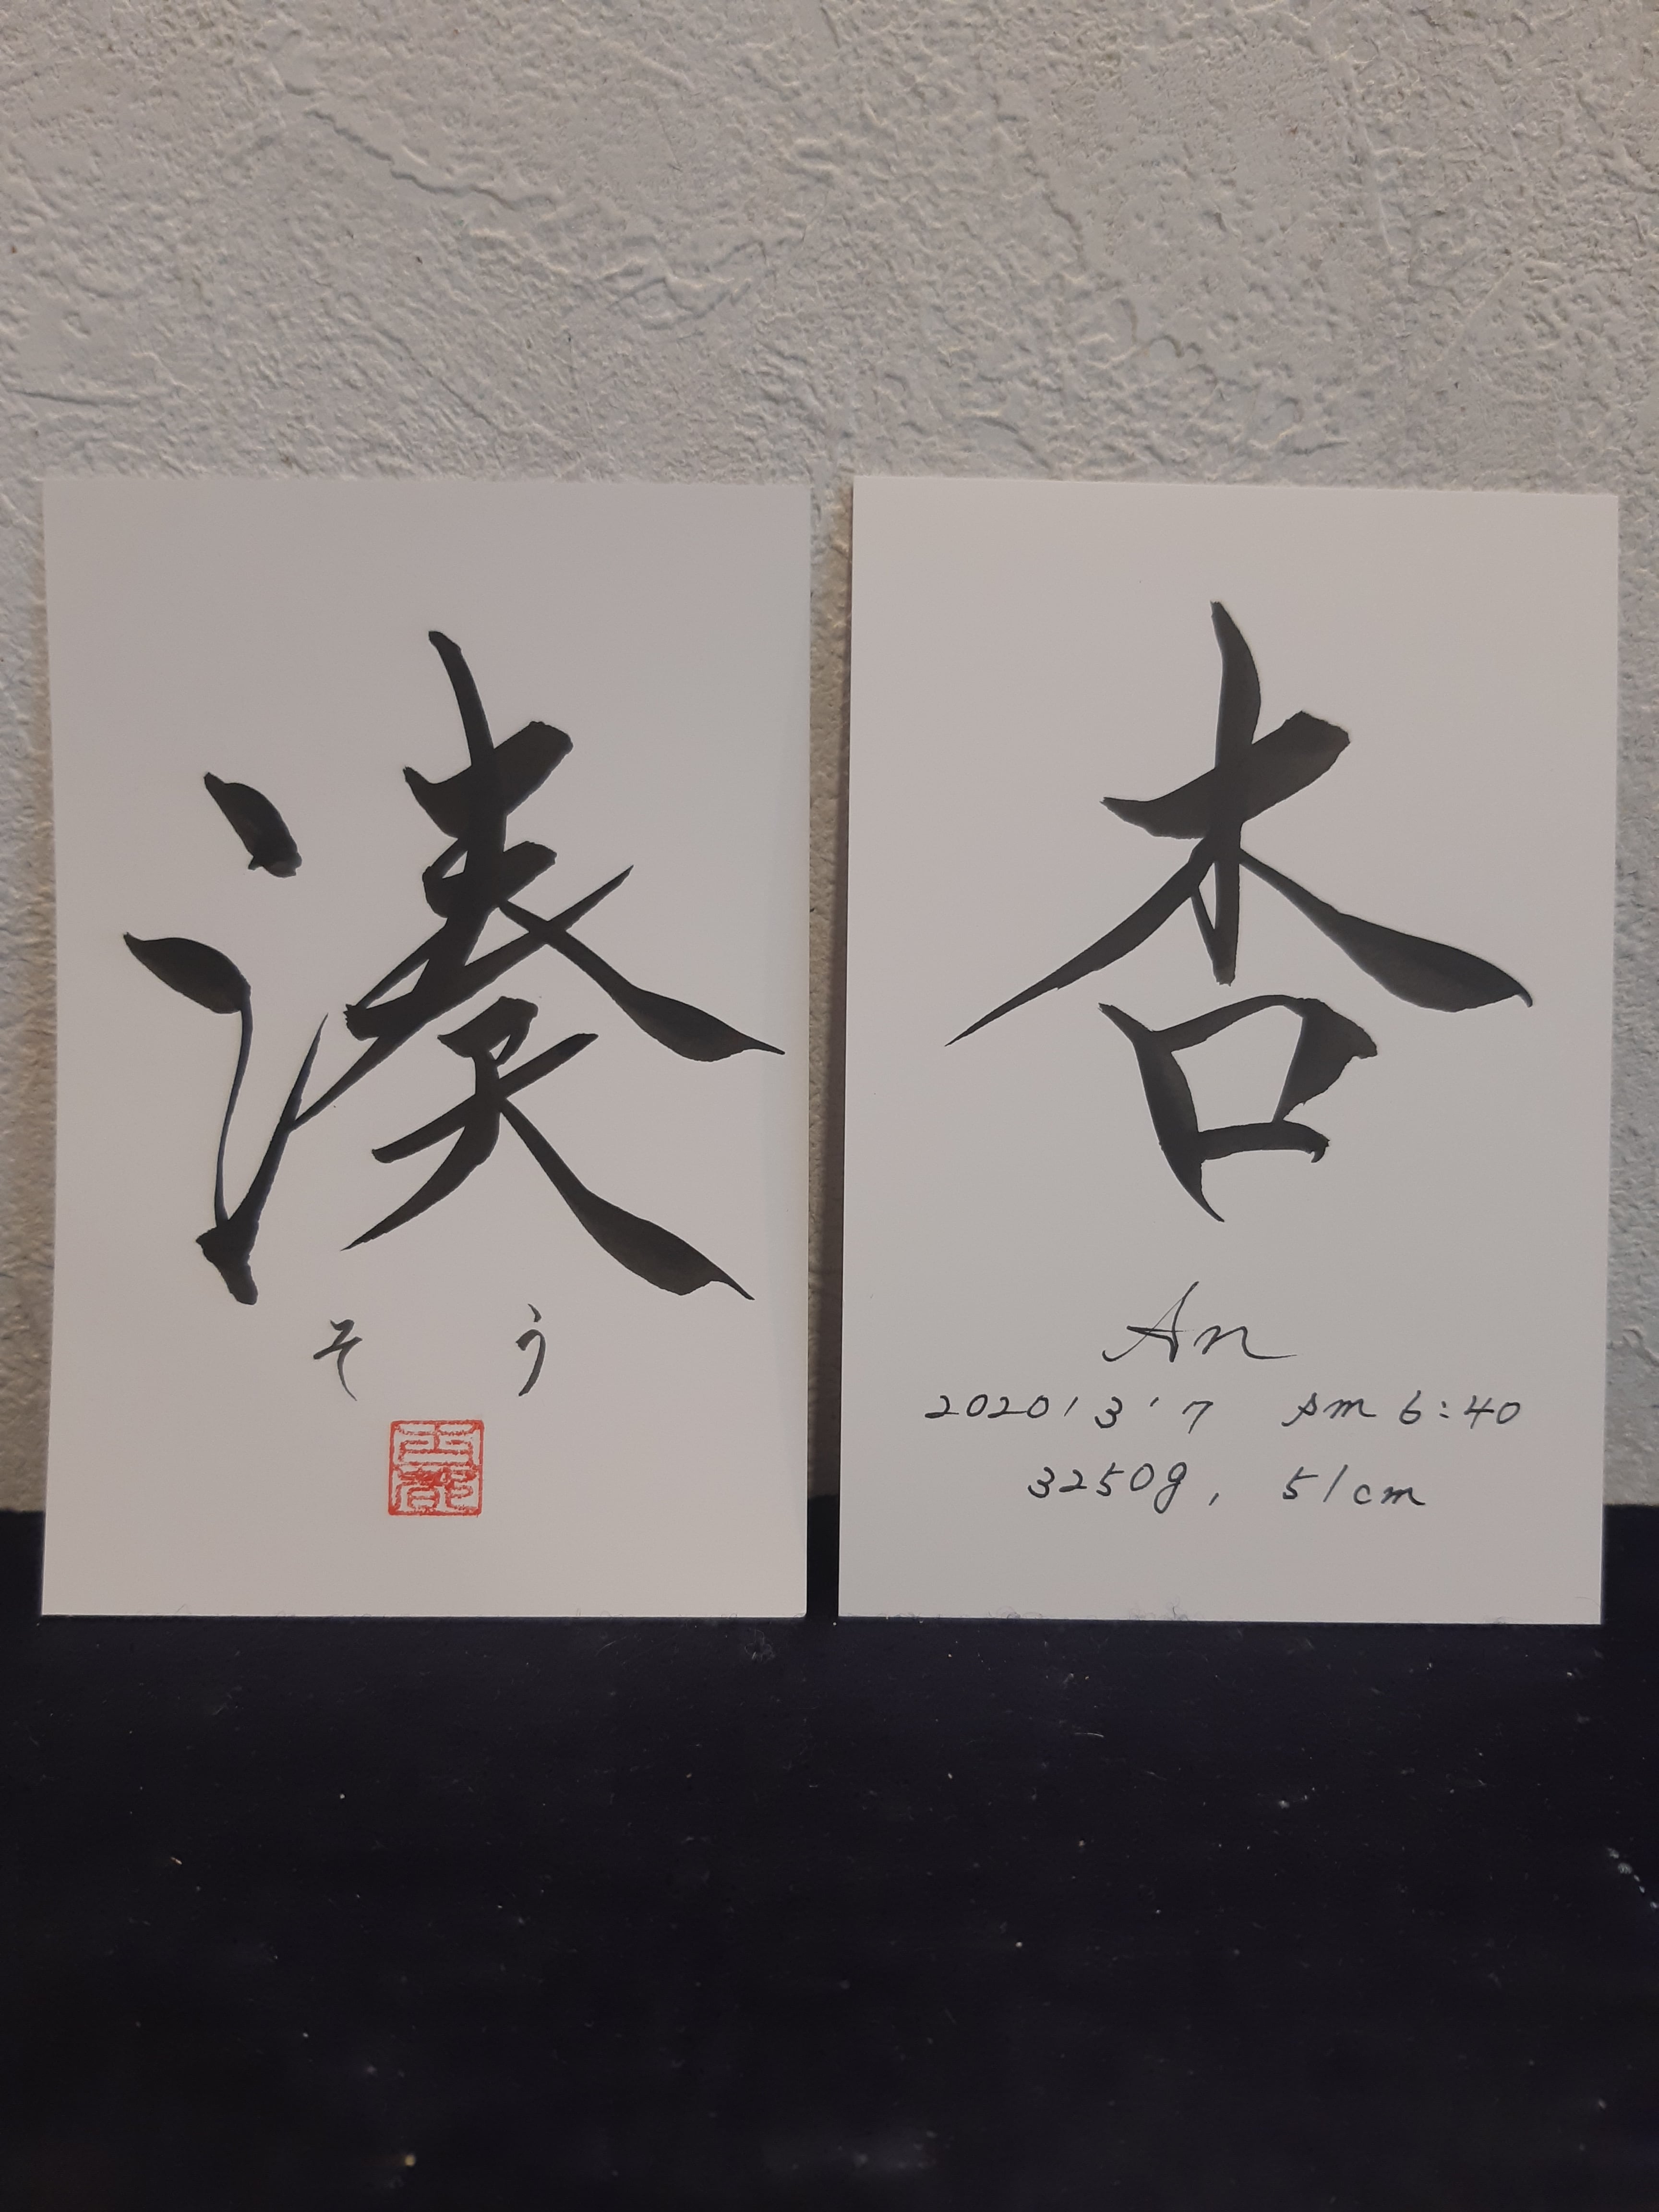 湊
そう
杏
An
2020' 3' 7 Am 6:40
3250g, 51cm